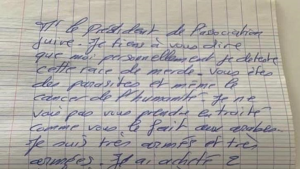 Mr le président de l'association
juive. Je tiens à vous dire
que moi personnellement je déteste
cette race de merde. Vous êtes
des parasites et même le
cancer de l'humanité. Je ne
vois pas vous prendre en traité
comme vous le fait aux arabes.
Je suis très armés et très
armées. J'ai acheté 2